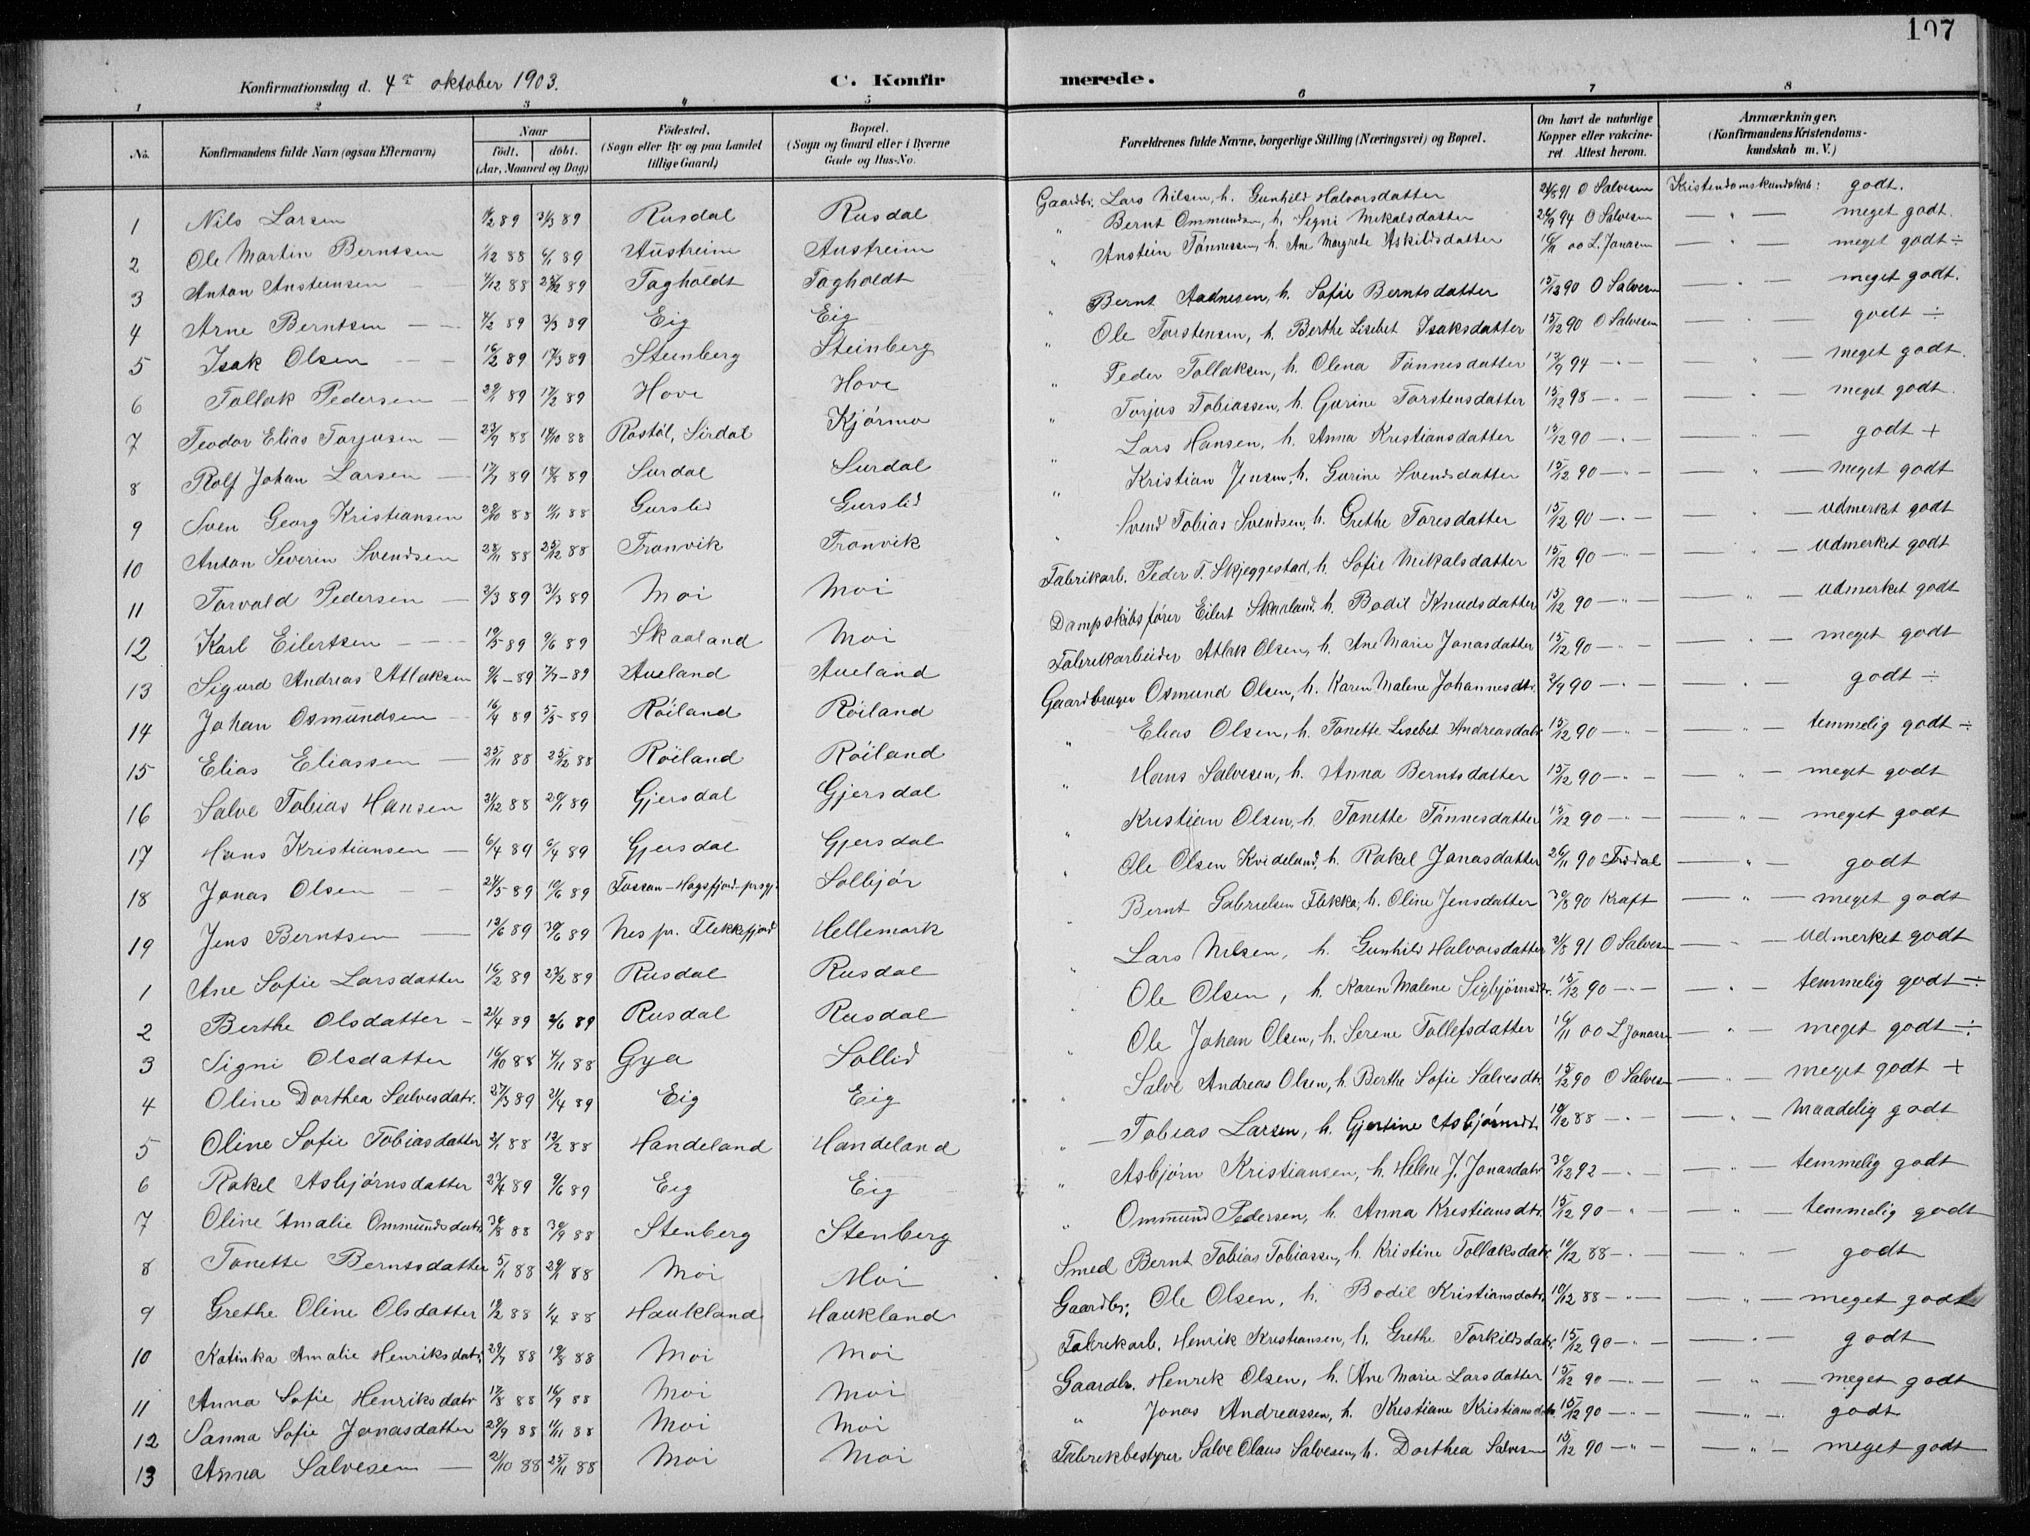 107
Konfirmationsdag d. 4de oktober 1903. C. Konfirmerede.
1 2 3 4 5 6 7 8
No. Konfirmandens fulde Navn (ogsaa Efternavn) Naar født. døbt. (Aar, Maaned og Dag) Fødested. (Sogn eller By og paa Landet tillige Gaard) Bopæl. (Sogn og Gaard eller i Byerne Gade og Hus-No. Forældrenes fulde Navne, borgerlige Stilling (Næringsvei) og Bopæl. Om havt de naturlige Kopper eller vakcineret. Attest herom. Anmærkninger. (Konfirmandens Kristendomskundskab m. V.)
1 Nils Larsen 89 89 Rusdal Rusdal Gaardbr. Lars Nilsen, h. Gunhild Halvorsdatter 91 O Salvesen Kristendomskundskab: godt.
2 Ole Martin Berntsen 1/12 88 6/1 89 Austreim Austreim " Bernt Ommundsen, h. Signi Mikalsdatter 94 O Salvesen — " — meget godt.
3 Anton Ansteinsen 88 89 Tagholdt Tagholdt " Anstein Tønnessen, h. Ane Margrete Askildsdatter 00 L. Jonasen — " — meget godt ÷
4 Arne Berntsen 4/2 89 3/3 89 Eig Eig " Bernt Aadnesen, h. Sofie Berntsdatter 15/12 90 O Salvesen — " — meget godt.
5 Isak Olsen 16/2 89 17/3 89 Steinberg Steinberg " Ole Torstensen, h. Berthe Lisebet Isaksdatter 15/12 90 O Salvesen — " — godt ÷
6 Tollak Pedersen 89 17/2 89 Hove Hove " Peder Tollaksen, h. Olena Tønnesdatter 12/9 94 — " — meget godt.
7 Teodor Elias Torjusen 23/9 88 14/10 88 Rostøl, Sirdal Kjørmo " Torjus Tobiassen, h. Gurine Torstensdatter 15/12 98 — " — meget godt.
8 Rolf Johan Larsen 89 89 Surdal Surdal " Lars Hansen, h. Anna Kristiansdatter 15/12 90 — " — godt +
9 Sven Georg Kristiansen 88 88 Gurslid Gurslid " Kristian Jensen, h. Gurine Svendsdatter 15/12 90 — " — meget godt
10 Anton Severin Svendsen 28/11 88 25/12 88 Tronvik Tronvik " Svend Tobias Svendsen, h. Grethe Toresdatter 15/12 90 — " — udmerket godt
11 Torvald Pedersen 3/3 89 31/3 89 Moi Moi Fabrikarb. Peder T. Skjeggestad, h. Sofie Mikalsdatter 15/12 90 — " — udmerket godt
12 Karl Eilertsen 19/5 89 9/6 89 Skaaland Moi Dampskibsfører Eilert Skaaland, h. Bodil Knudsdatter 15/12 90 — " — udmerket godt
13 Sigurd Andreas Atlaksen 9/6 - 89 7/7 - 89 Aueland Aueland Fabrikarbeider Atlak Olsen, h. Ane Marie Jonasdatter 15/12 90 — " — meget godt
14 Johan Osmundsen 16/4 89 5/5 89 Røiland Røiland Gaardbruger Osmund Olsen, h. Karen Malene Johannesdtr. 90 — " — godt ÷
15 Elias Eliassen 25/11 88 25/12 88 Røiland Røiland " Elias Olsen, h. Tonette Lisebet Andreasdatr 15/12 90 — " — temmelig godt ÷
16 Salve Tobias Hansen 31/12 88 20/1 89 Gjersdal Gjersdal " Hans Salvesen, h. Anna Berntsdatter 15/12 90 — " — meget godt
17 Hans Kristiansen 89 89 Gjersdal Gjersdal " Kristian Olsen, h. Tonette Tønnesdatter 15/12 90 — " — meget godt
18 Jonas Olsen 24/5 89 10/6 89 Fossan-Høgsfjord-prgj. Solbjør " Ole Olsen Kvideland, h. Rakel Jonasdatter 26/11 90 — " — godt
19 Jens Berntsen 12/6 89 30/6 89 Nes pr. Flekkefjord Hellemork " Bernt Gabrielsen Flekke, h. Oline Jensdatter 30/8 90 Kraft — " — meget godt
1 Ane Sofie Larsdatter 16/2 89 89 Rusdal Rusdal " Lars Nilsen, h. Gunhild Halvorsdatter 91 O Salvesen — " — udmerket godt
2 Berthe Olsdatter 21/4 89 2/6 89 Rusdal Rusdal " Ole Olsen, h. Karen Malene Sigbjørnsdtr. 15/12 90 — " — temmelig godt ÷
3 Signi Olsdatter 16/10 88 4/11 88 Gya Sollid " Ole Johan Olsen, h. Serene Tollefsdatter 00 L Jonasen — " — meget godt ÷
4 Oline Dorthea Salvesdatr. 27/3 89 21/4 89 Eig Eig " Salve Andreas Olsen, h. Berthe Sofie Salvesdtr. 15/12 90 O Salvesen — " — meget godt +
5 Oline Sofie Tobiasdatter 88 12/2 88 Handeland Handeland " Tobias Larsen, h. Gjertine Asbjørnsdt. 10/12 88 — " — maadelig godt
6 Rakel Asbjørnsdatter 89 9/6 89 Eig Eig " Asbjørn Kristiansen, h. Helene J. Jonasdatr 30/12 92 — " — temmelig godt
7 Oline Amalie Ommundsdatr. 30/8 88 30/9 88 Stenberg Stenberg " Ommund Pedersen, h. Anna Kristiansdtr. 15/12 90 — " — temmelig godt
8 Tonette Berntsdatter 5/11 88 29/11 88 Moi Moi Smed Bernt Tobias Tobiassen, h. Kristine Tollaksdatr 10/12 88 — " — godt
9 Grethe Oline Olsdatter 88 1/4 88 Haukland Haukland Gaardbr. Ole Olsen, h. Bodil Kristiansdatr. 10/12 88 — " — meget godt
10 Katinka Amalie Henriksdatr. 29/7 88 19/8 88 Moi Moi Fabrikarb. Henrik Kristiansen, h. Grethe Torkildsdatr. 15/12 90 — " — godt
11 Anna Sofie Henriksdatr 88 16/9 88 Moi Moi Gaardbr. Henrik Olsen, h. Ane Marie Larsdatter 15/12 90 — " — meget godt
12 Sanna Sofie Jonasdatter 29/9 88 11/11 88 Moi Moi " Jonas Andreassen, h. Kristiane Kristiansdatr 15/12 90 — " — godt
13 Anna Salvesen 21/10 88 25/11 88 Moi Moi Fabrikbestyrer Salve Olaus Salvesen, h. Dorthea Salvesen 15/12 90 — " — meget godt